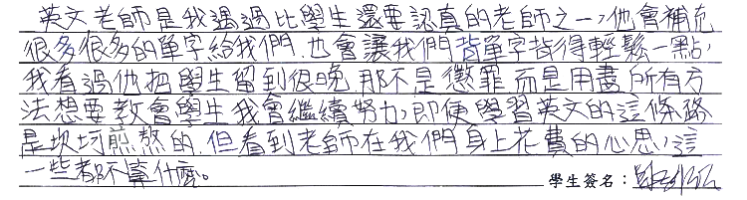 英文老師是我遇過比學生還要認真的老師之一，他會補充
很多很多的單字給我們，也會讓我們背單字背得輕鬆一點，
我看過他把學生留到很晚，那不是懲罪而是用盡所有方
法想要教會學生，我會繼續努力，即使學習英文的這條路
是坎坷煎熬的，但看到老師在我們身上花費的心思，這
一些都不算什麼。
學生簽名：